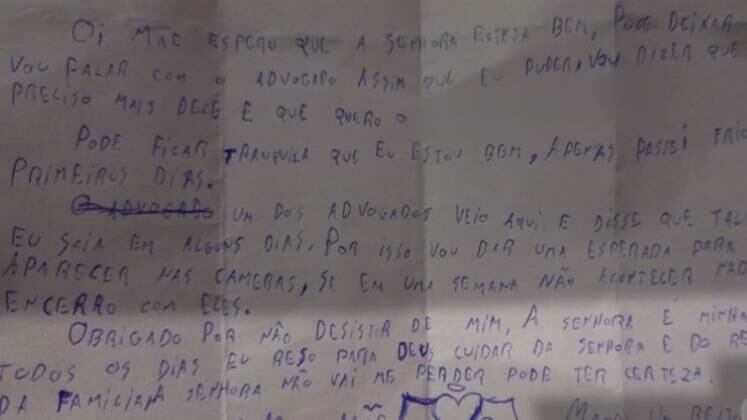 OI MÃE ESPERO QUE A SENHORA ESTEJA BEM, PODE DEIXAR
VOU FALAR COM O ADVOGADO ASSIM QUE EU PUDER, VOU DIZER QUE
PRECISO MAIS DELE E QUE QUERO O
PODE FICAR TRANQUILA QUE EU ESTOU BEM, APENAS PASSEI FRIO
PRIMEIROS DIAS.
O ADVOGADO UM DOS ADVOGADOS VEIO AQUI. E DISSE QUE TAL
EU SAIA EM ALGUNS DIAS. POR ISSO VOU DAR UMA ESPERADA PARA
APARECER NAS CAMERAS, SE EM UMA SEMANA NÃO ACONTECER NAD
ENCERRO COM ELES.
OBRIGADO POR NÃO DESISTIR DE MIM, A SENHORA É MINHA
TODOS OS DIAS EU RESO PARA DEUS CUIDAR DA SENHORA E DO RE
DA FAMILIA A SENHORA NÃO VAI ME PERDER PODE TER CERTEZA.